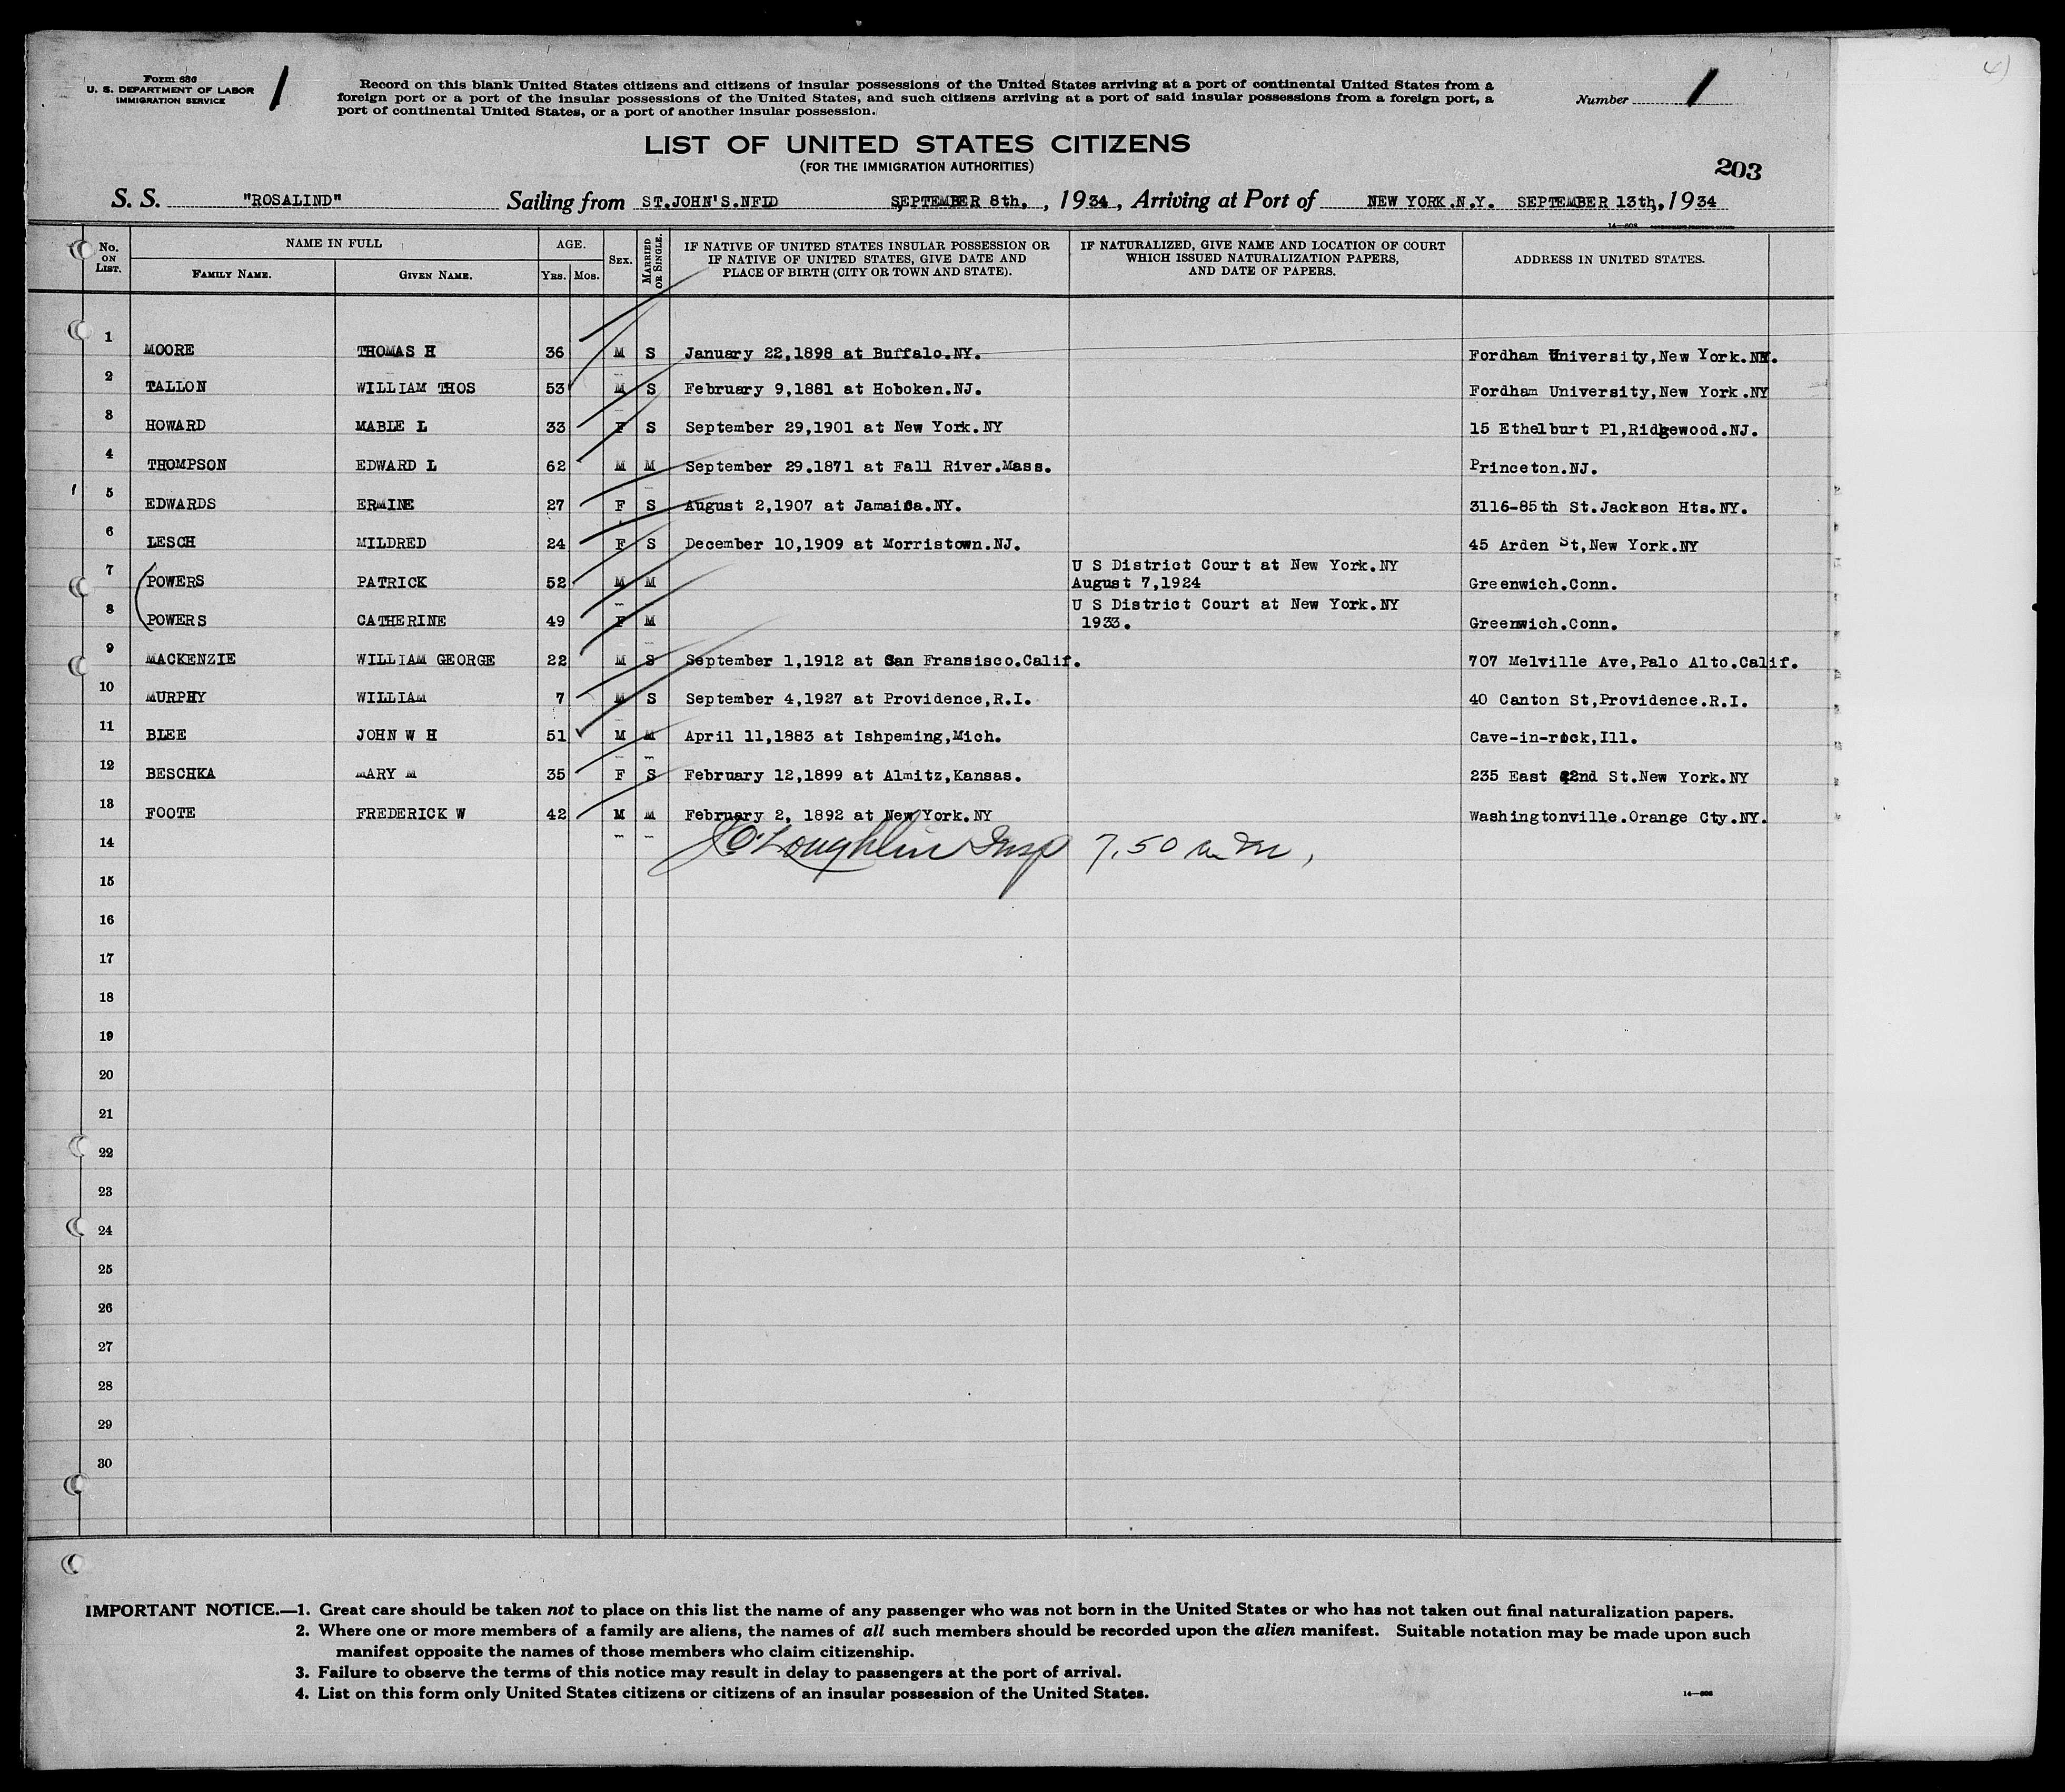 Form 686
U. S. DEPARTMENT OF LABOR
IMMIGRATION SERVICE
1
Record on this blank United States citizens and citizens of insular possessions of the United States arriving at a port of continental United States from a
foreign port or a port of the insular possessions of the United States, and such citizens arriving at a port of said insular possessions from a foreign port, a
port of continental United States, or a port of another insular possession.
Number 1
LIST OF UNITED STATES CITIZENS
(FOR THE IMMIGRATION AUTHORITIES)
203
S. S. "ROSALIND" Sailing from ST.JOHN'S.NFLD SEPTEMBER 8th. , 1934 , Arriving at Port of NEW YORK.N.Y. SEPTEMBER 13th, 1934
No. ON LIST. NAME IN FULL FAMILY NAME. GIVEN NAME. AGE. YRS. MOS. SEX. MARRIED OR SINGLE. IF NATIVE OF UNITED STATES INSULAR POSSESSION OR IF NATIVE OF UNITED STATES, GIVE DATE AND PLACE OF BIRTH (CITY OR TOWN AND STATE). IF NATURALIZED, GIVE NAME AND LOCATION OF COURT WHICH ISSUED NATURALIZATION PAPERS, AND DATE OF PAPERS. ADDRESS IN UNITED STATES.
1 MOORE THOMAS H 36 M S January 22,1898 at Buffalo.NY. Fordham University,New York.NY.
2 TALLON WILLIAM THOS 53 M S February 9,1881 at Hoboken.NJ. Fordham University,New York.NY
3 HOWARD MABLE L 33 F S September 29,1901 at New York.NY 15 Ethelburt Pl,Ridgewood.NJ.
4 THOMPSON EDWARD L 62 M M September 29.1871 at Fall River.Mass. Princeton.NJ.
5 EDWARDS ERMINE 27 F S August 2,1907 at Jamaica.NY. 3116-85th St.Jackson Hts.NY.
6 LESCH MILDRED 24 F S December 10,1909 at Morristown.NJ. 45 Arden St,New York.NY
7 POWERS PATRICK 52 M M U S District Court at New York.NY August 7,1924 Greenwich.Conn.
8 POWERS CATHERINE 49 F M U S District Court at New York.NY 1933. Greenwich.Conn.
9 MACKENZIE WILLIAM GEORGE 22 M S September 1,1912 at San Fransisco.Calif. 707 Melville Ave,Palo Alto.Calif.
10 MURPHY WILLIAM 7 M S September 4,1927 at Providence,R.I. 40 Canton St,Providence.R.I.
11 BLEE JOHN W H 51 M M April 11,1883 at Ishpeming,Mich. Cave-in-rock,Ill.
12 BESCHKA MARY M 35 F S February 12,1899 at Almitz,Kansas. 235 East 22nd St.New York.NY
13 FOOTE FREDERICK W 42 M M February 2, 1892 at New York.NY Washingtonville.Orange Cty.NY.
14 J O'Loughlin Insp 7.50 a m,
15
16
17
18
19
20
21
22
23
24
25
26
27
28
29
30
IMPORTANT NOTICE.—1. Great care should be taken not to place on this list the name of any passenger who was not born in the United States or who has not taken out final naturalization papers.
2. Where one or more members of a family are aliens, the names of all such members should be recorded upon the alien manifest. Suitable notation may be made upon such
manifest opposite the names of those members who claim citizenship.
3. Failure to observe the terms of this notice may result in delay to passengers at the port of arrival.
4. List on this form only United States citizens or citizens of an insular possession of the United States.